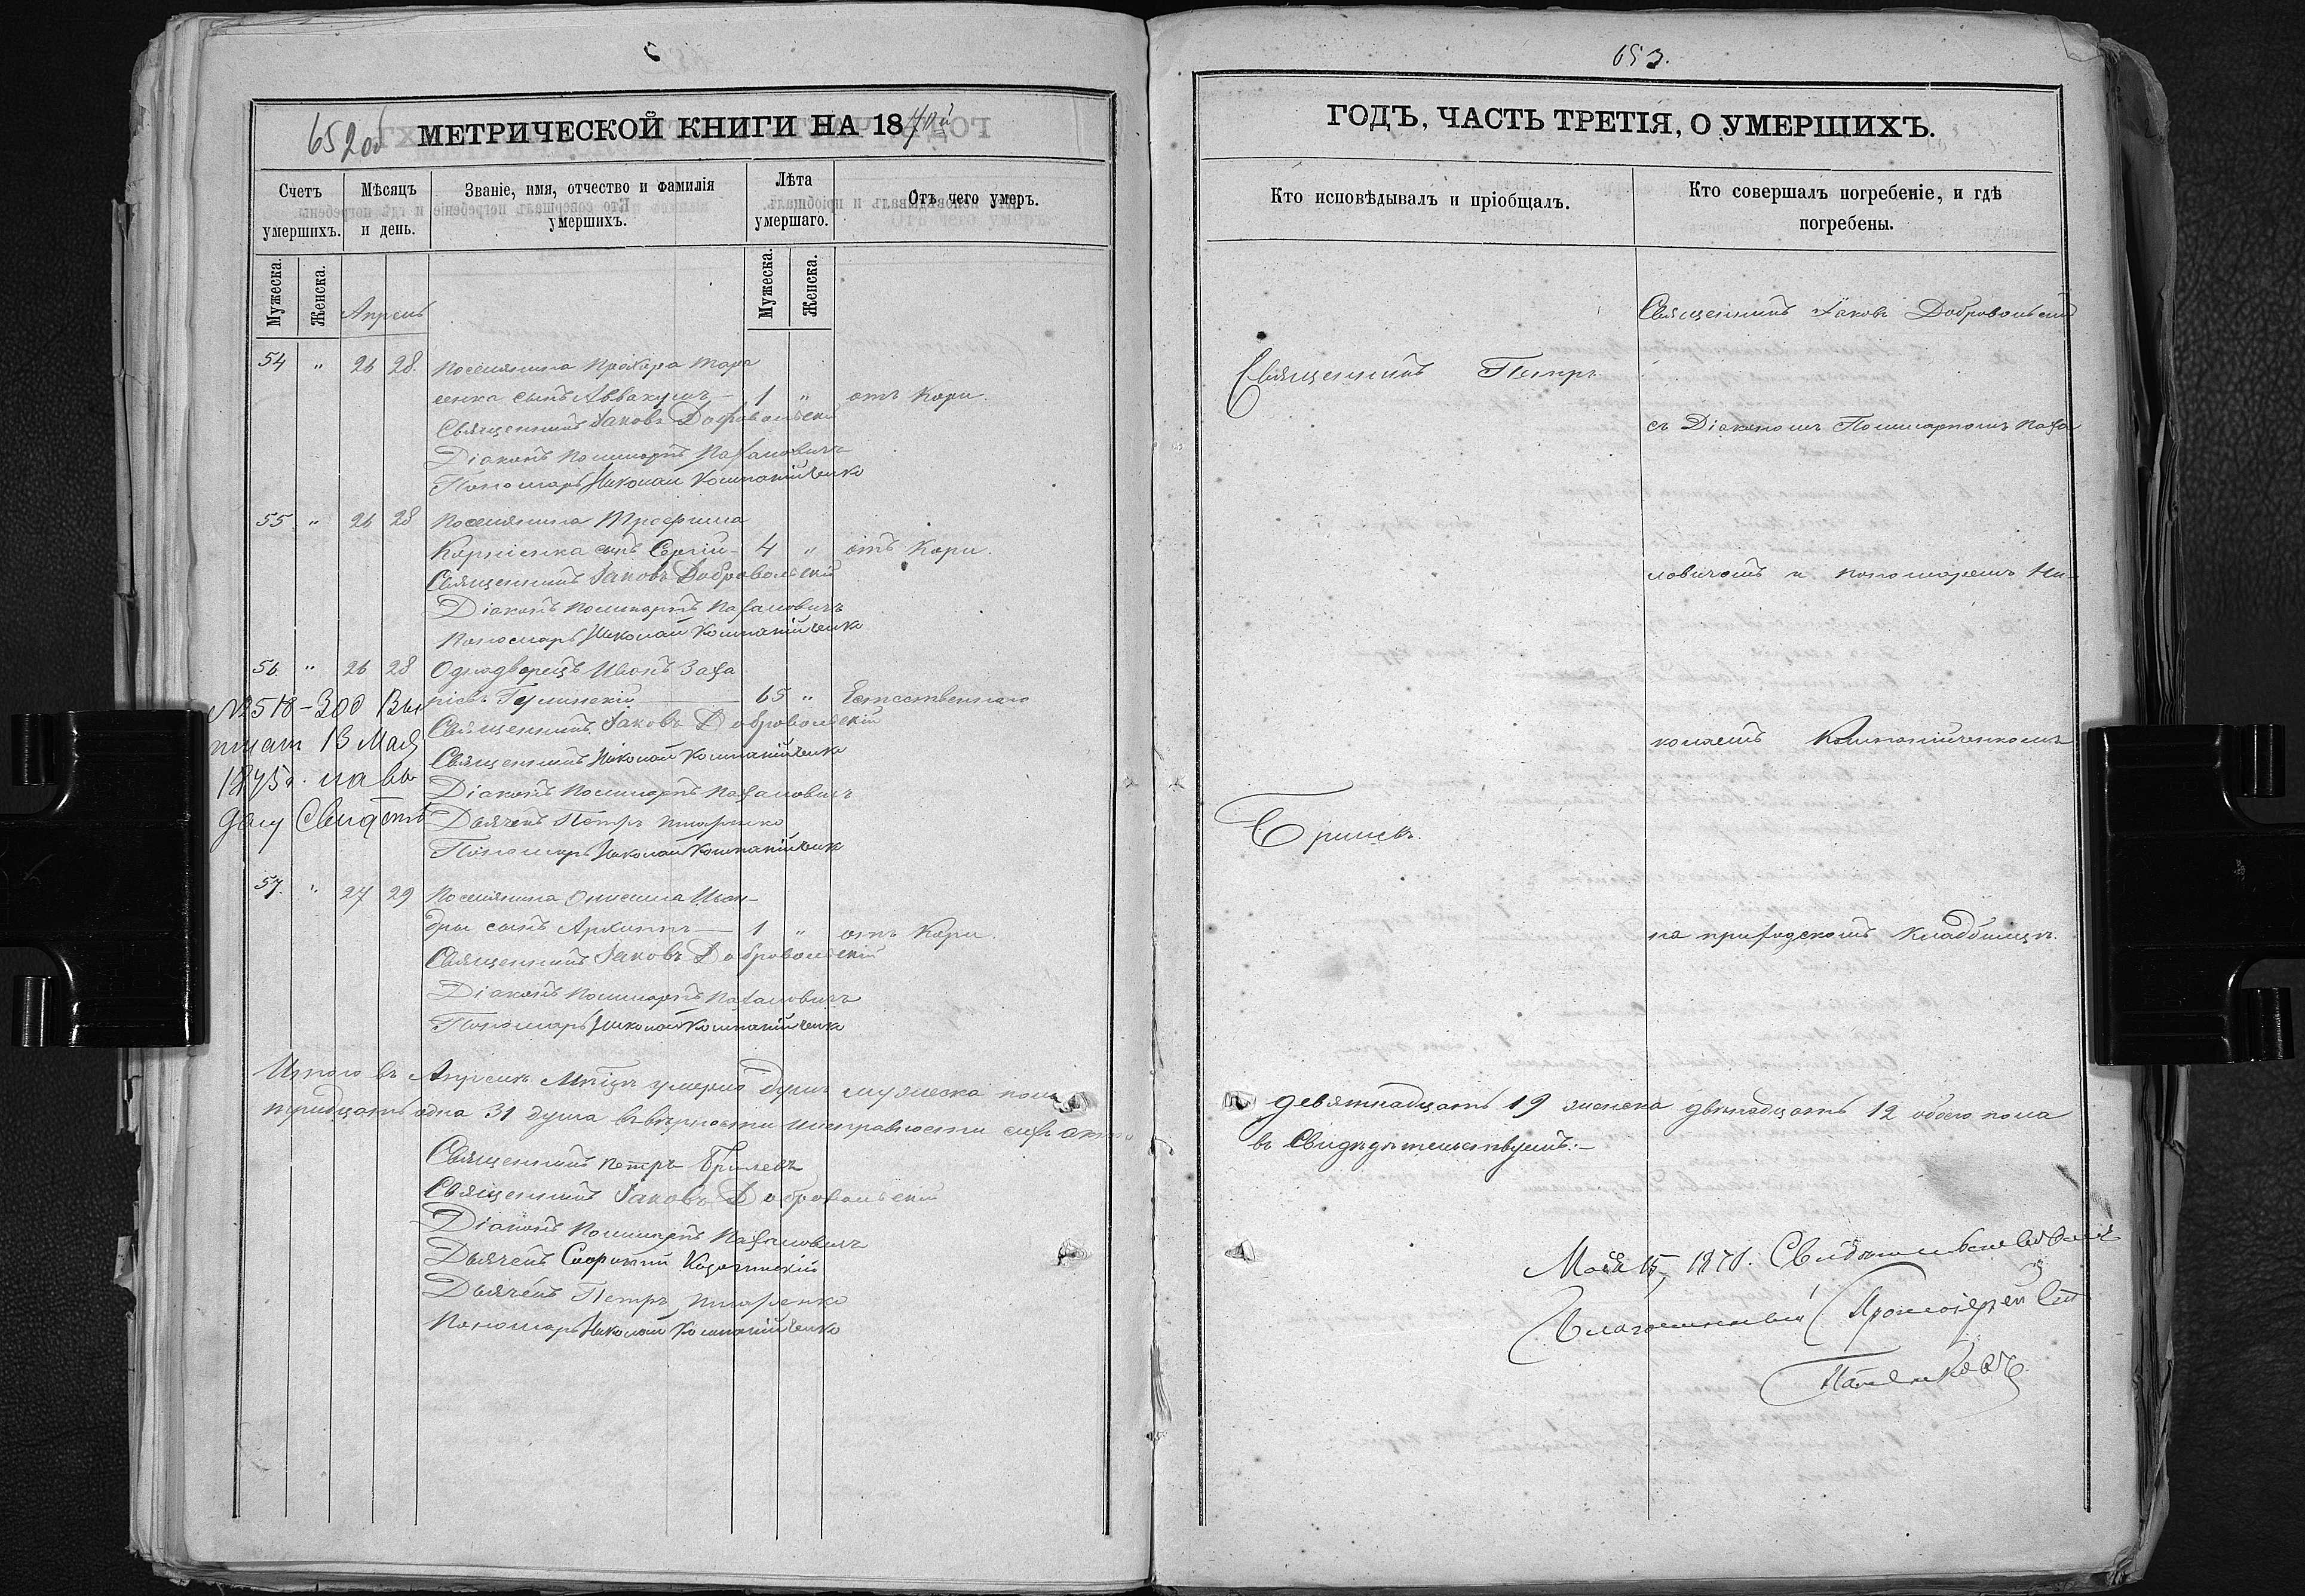 652об
МЕТРИЧЕСКОЙ КНИГИ НА 1870й
Счетъ умершихъ.
Мѣсяцъ и день.
Званіе, имя, отчество и фамилія умершихъ.
Лѣта умершаго.
Отъ чего умеръ.
Мужеска.
Женска.
Мужеска.
Женска.
Апрель
54 " 26 28. Поселянина Прохора Тара
сенка сынъ Аввакумъ — 1 " отъ Кори.
Священникъ Іаковъ Добровольскій
Діаконъ Поликарпъ
Пономарь Николай Компанійченко
55 " 26 28 Поселянина Трофима
Корніенка сынъ Сергій — 4 " отъ Кори.
Священникъ Іаковъ Добровольскій
Діаконъ Поликарпъ
Пономарь Николай Компанійченко
56. " 26 28 Однодворецъ Иванъ Заха
ріевъ — 65 " Естественною
Священникъ Іаковъ Добровольскій
Священникъ Николай Компанійченко
Діаконъ Поликарпъ
Дьячекъ Петръ
Пономарь Николай Компанійченко
№ 2518 - 30д Вы
13 Мая
1875г. на вы
дачу Свидет
57. " 27 29 Поселянина Онисима
дры сынъ Архиппъ — 1 " отъ Кори.
Священникъ Іаковъ Добровольскій
Діаконъ Поликарпъ
Пономарь Николай Компанійченко
Итого въ Апрелѣ Мѣсяцѣ умерло душъ мужеска пола
тридцать одна 31 душа въ вѣрности исправности
Священникъ Петръ Брилевъ
Священникъ Іаковъ Добровольскій
Діаконъ Поликарпъ
Дьячекъ Софоній
Дьячекъ Петръ
Пономарь Николай Компанійченко
653.
ГОДЪ, ЧАСТЬ ТРЕТІЯ, О УМЕРШИХЪ.
Кто исповѣдывалъ и пріобщалъ.
Кто совершалъ погребеніе, и гдѣ погребены.
Священникъ Іаковъ Добровольскій
Священникъ Петръ
съ Діакономъ Поликарпомъ
ловичемъ и пономаремъ Ни-
колаемъ Компанійченкомъ
Брилевъ.
на приходскомъ кладбищѣ.
девятнадцать 19 женска двѣнадцать 12 обоего пола
въ Свидѣтельствуемъ:—
Мая 15, 1870. Свидѣтельствовалъ
Благочинный Протоіерей